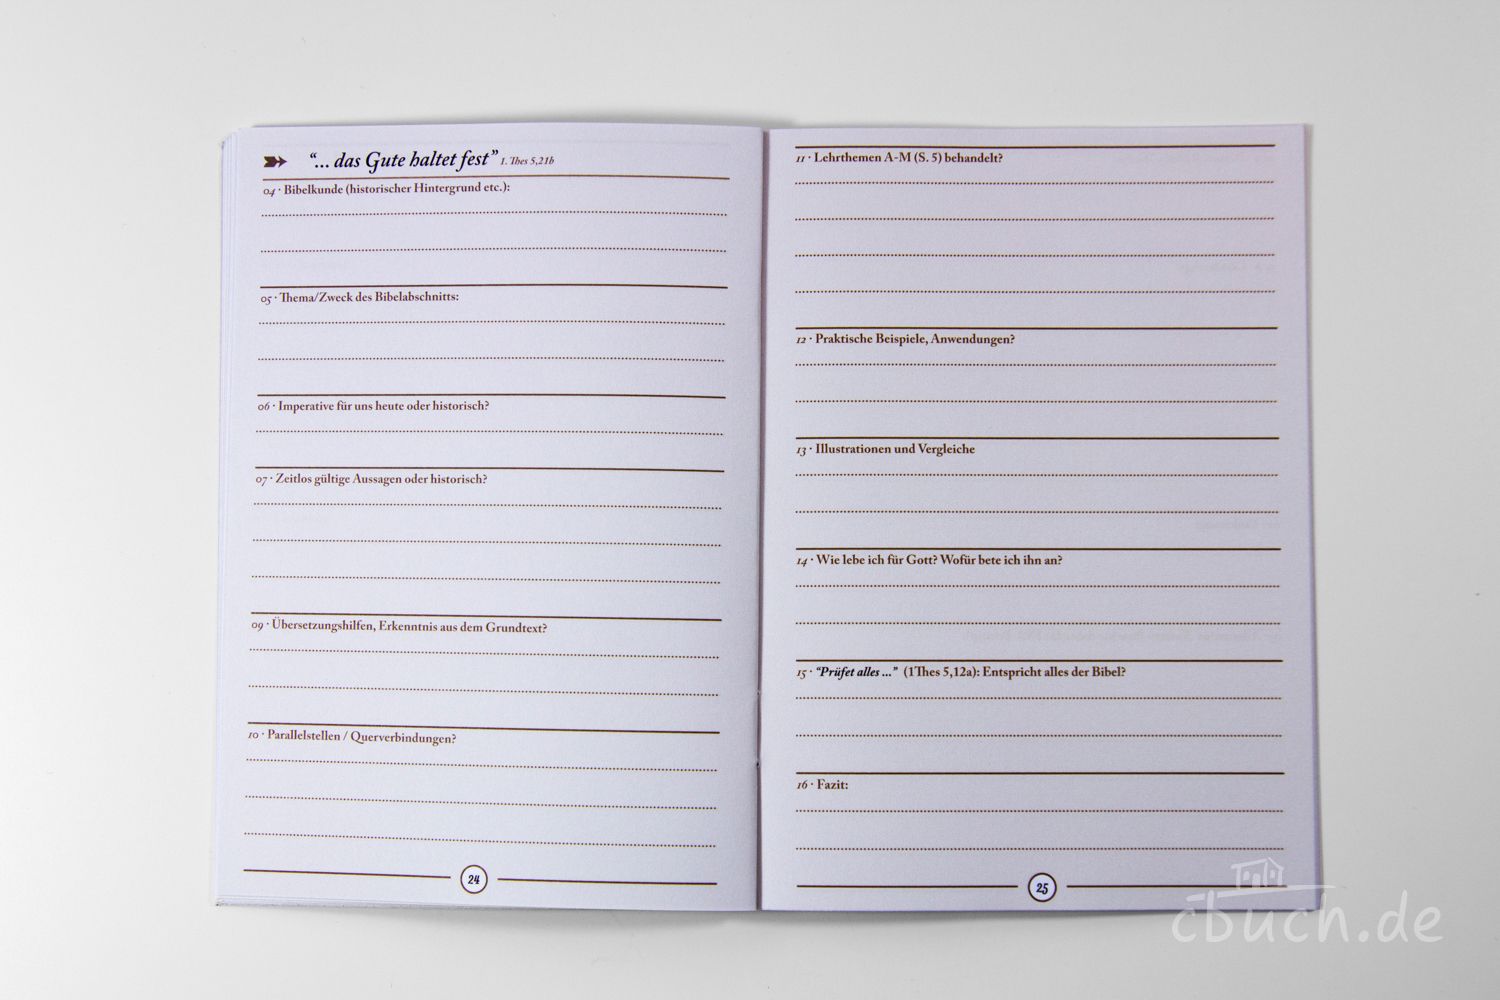 “... das Gute haltet fest” 1. Thes 5,21b
04 · Bibelkunde (historischer Hintergrund etc.):
05 · Thema/Zweck des Bibelabschnitts:
06 · Imperative für uns heute oder historisch?
07 · Zeitlos gültige Aussagen oder historisch?
09 · Übersetzungshilfen, Erkenntnis aus dem Grundtext?
10 · Parallelstellen / Querverbindungen?
24
11 · Lehrthemen A-M (S. 5) behandelt?
12 · Praktische Beispiele, Anwendungen?
13 · Illustrationen und Vergleiche
14 · Wie lebe ich für Gott? Wofür bete ich ihn an?
15 · “Prüfet alles ...” (1Thes 5,12a): Entspricht alles der Bibel?
16 · Fazit:
25
cbuch.de